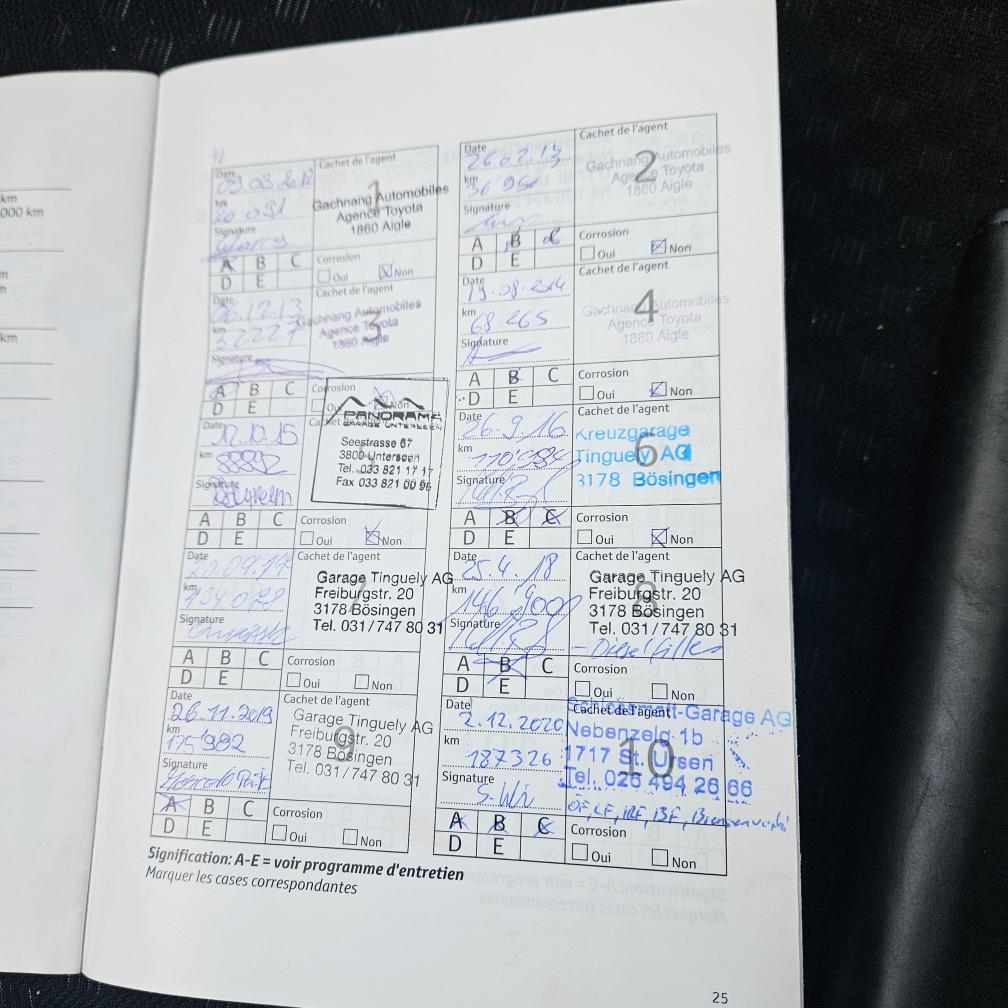 km
000 km
m
km
Date
09.03.2012
km
20 091
Signature
Cachet de l'agent
1
Gachnang Automobiles
Agence Toyota
1860 Aigle
A B C
D E
Corrosion
Oui Non
Date
26.02.13
km
36 950
Signature
Cachet de l'agent
2
Gachnang Automobiles
Agence Toyota
1860 Aigle
A B C
D E
Corrosion
Oui Non
Date
06.12.13
km
52227
Signature
Cachet de l'agent
3
Gachnang Automobiles
Agence Toyota
1860 Aigle
A B C
D E
Corrosion
Non
Date
19.08.2014
km
68 265
Signature
Cachet de l'agent
4
Gachnang Automobiles
Agence Toyota
1860 Aigle
A B C
D E
Corrosion
Oui Non
Date
12.10.15
km
88892
Signature
PANORAMA
GARAGE UNTERSEEN
Seestrasse 67
3800 Unterseen
Tel. 033 821 17 17
Fax 033 821 00 96
A B C
D E
Corrosion
Oui Non
Date
26.9.16
km
Signature
Cachet de l'agent
6
Kreuzgarage
Tinguely AG
3178 Bösingen
A B C
D E
Corrosion
Oui Non
Date
20.09.17
km
134 072
Signature
Cachet de l'agent
Garage Tinguely AG
Freiburgstr. 20
3178 Bösingen
Tel. 031/747 80 31
A B C
D E
Corrosion
Oui Non
Date
25.4.18
km
146'900
Signature
Cachet de l'agent
8
Garage Tinguely AG
Freiburgstr. 20
3178 Bösingen
Tel. 031/747 80 31
- Diesel filter
A B C
D E
Corrosion
Oui Non
Date
26.11.2019
km
175'982
Signature
Cachet de l'agent
9
Garage Tinguely AG
Freiburgstr. 20
3178 Bösingen
Tel. 031/747 80 31
A B C
D E
Corrosion
Oui Non
Date
2.12.2020
km
187326
Signature
S. Wi
Cachet de l'agent
10
Schlossmatt-Garage AG
Nebenzelg 1b
1717 St. Ursen
Tel. 026 494 26 66
A B C
D E
Corrosion
Oui Non
Signification: A-E = voir programme d'entretien
Marquer les cases correspondantes
25